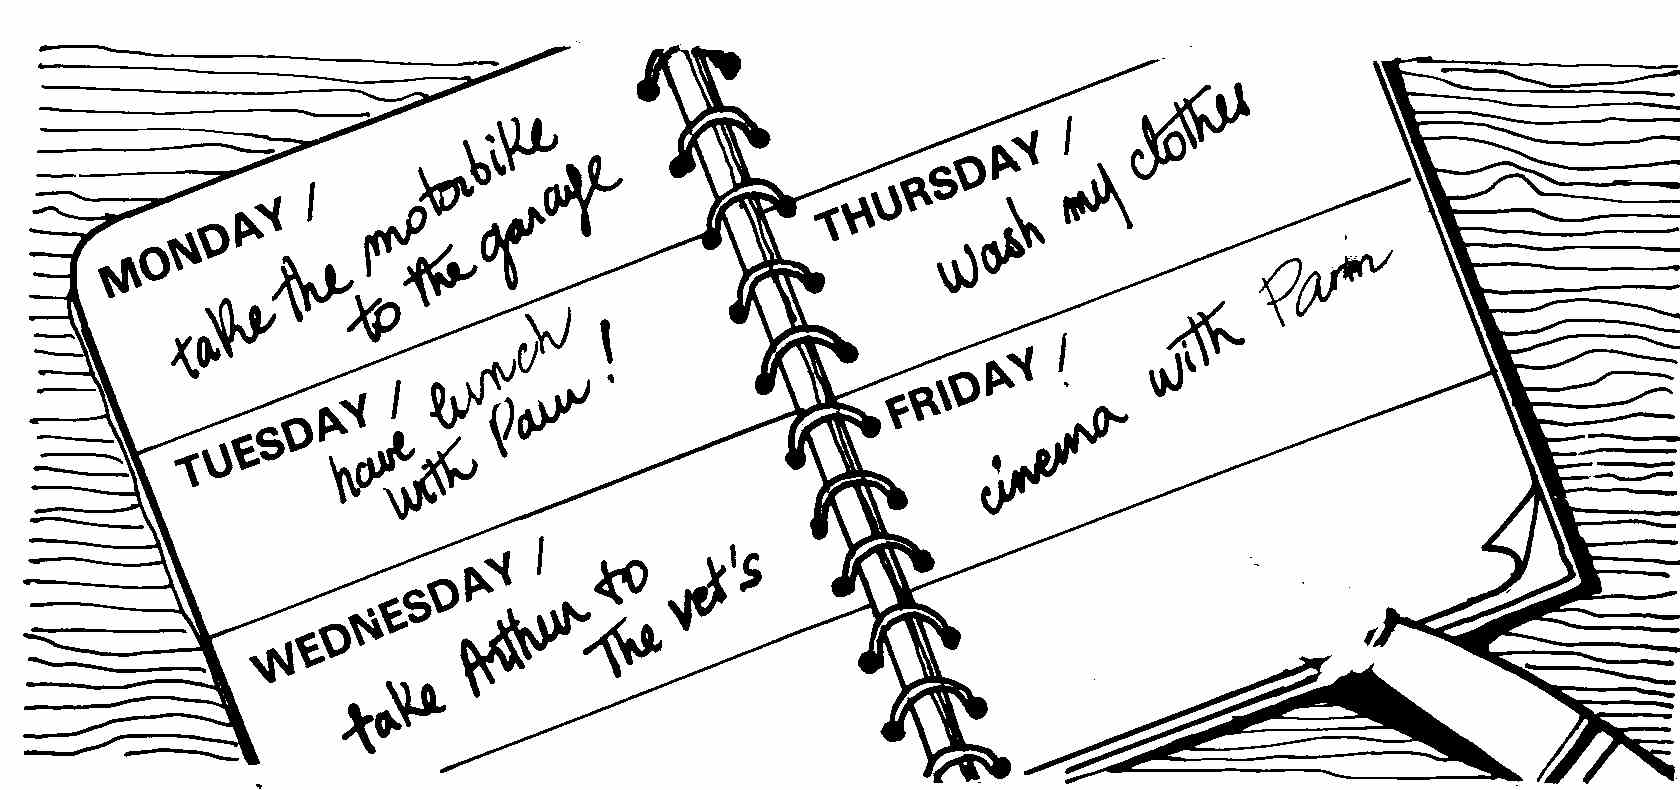 MONDAY /
take the motorbike
to the garage
TUESDAY /
have lunch
with !
WEDNESDAY /
take Arthur to
The vet's
THURSDAY /
wash my clothes
FRIDAY /
cinema with